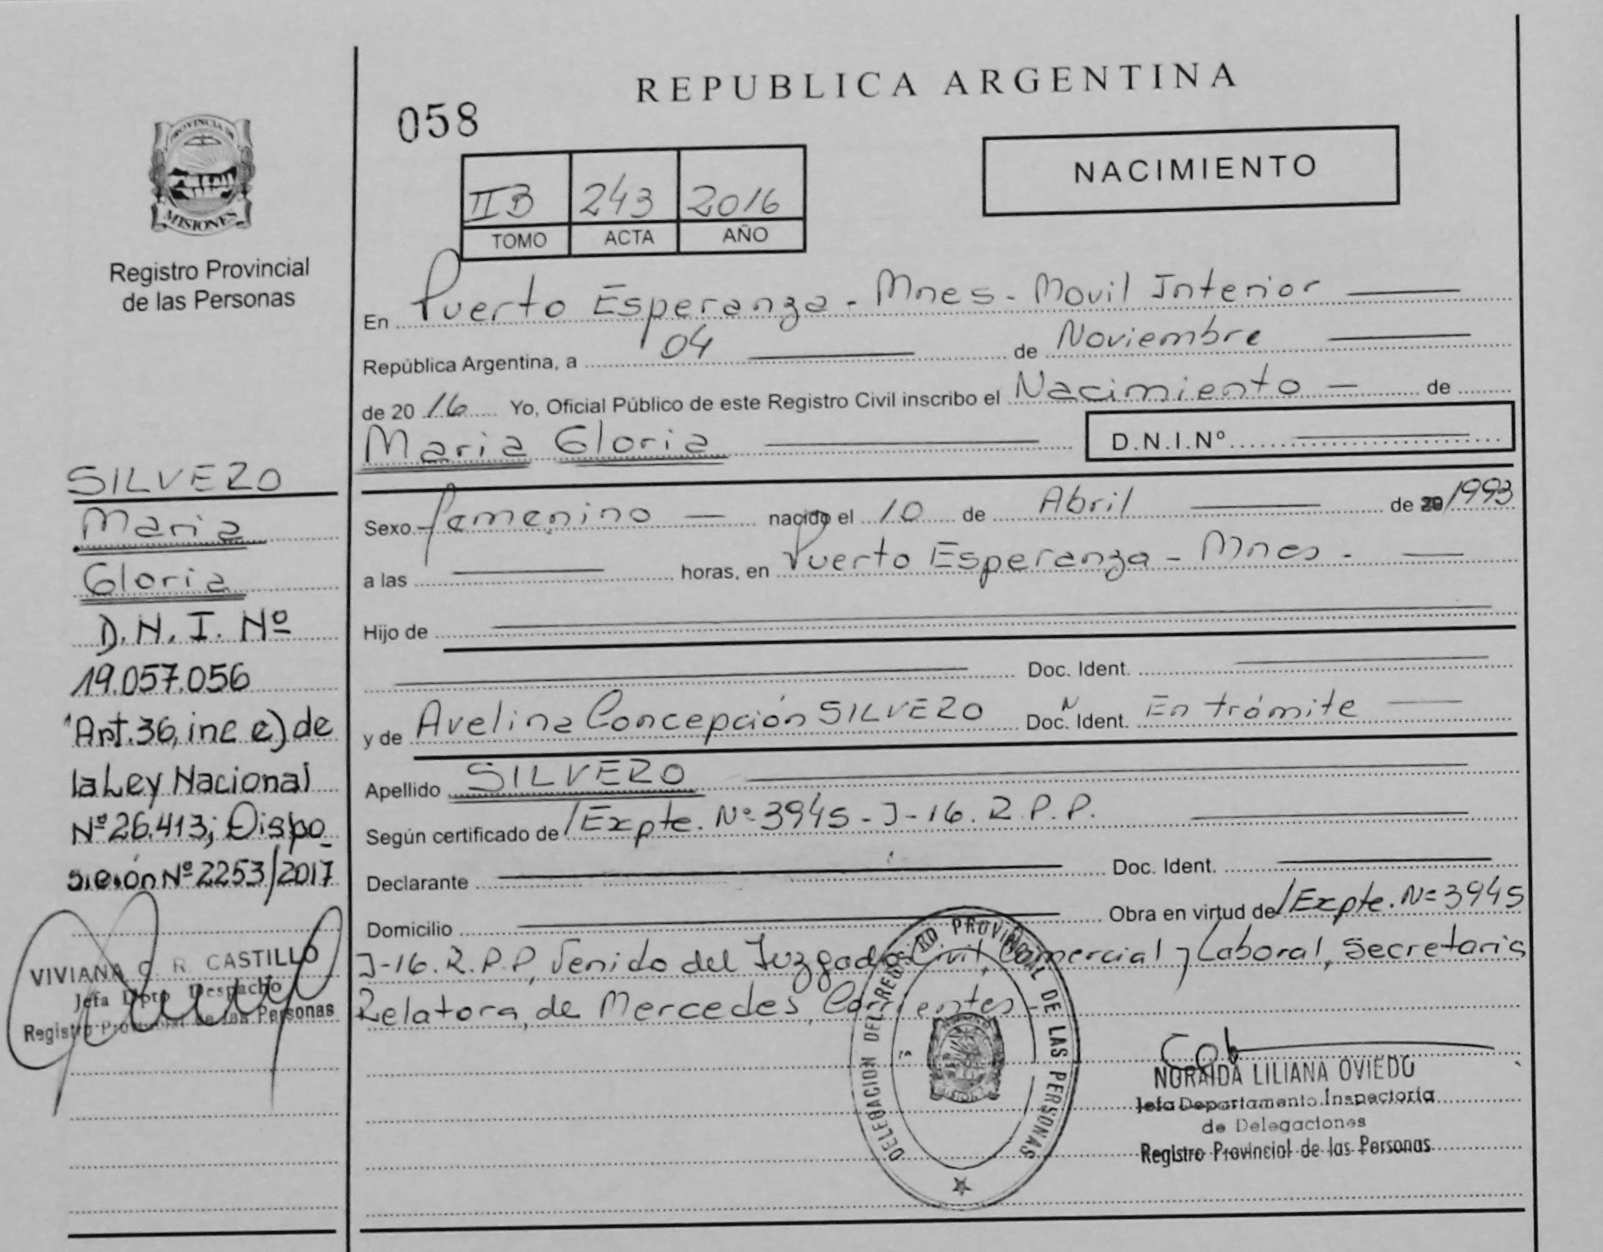 REPUBLICA ARGENTINA
058
NACIMIENTO
IIB 243 2016
TOMO ACTA AÑO
PROVINCIA DE
MISIONES
Registro Provincial
de las Personas
En Puerto Esperanza - Mnes - Movil Interior
República Argentina, a 04 de Noviembre
de 20 16 Yo, Oficial Público de este Registro Civil inscribo el Nacimiento de
Maria Gloria D.N.I.Nº
Sexo femenino nacido el 10 de Abril de 20/1993
a las horas, en Puerto Esperanza - Mnes -
Hijo de
Doc. Ident.
y de Avelina Concepción SILVERO Doc. Ident. En trámite
Apellido SILVERO
Según certificado de /Expte. Nº 3945 - J-16. R.P.P.
Declarante Doc. Ident.
Domicilio Obra en virtud de /Expte. Nº 3945
J-16. R.P.P, Venido del Juzgado Civil Comercial y Laboral, Secretaria
Relatora, de Mercedes, Corrientes -
SILVERO
Maria
Gloria
D.N.I. Nº
19.057.056
Art. 36, inc c) de
la Ley Nacional
Nº 26.413; Dispo
sición Nº 2253/2017
VIVIANA C. R. CASTILLO
Jefa Dpto Despacho
Registro Provincial de las Personas
DELEGACION DEL REGISTRO PROVINCIAL DE LAS PERSONAS
NORAIDA LILIANA OVIEDO
Jefa Departamento Inspectoria
de Delegaciones
Registro Provincial de las Personas